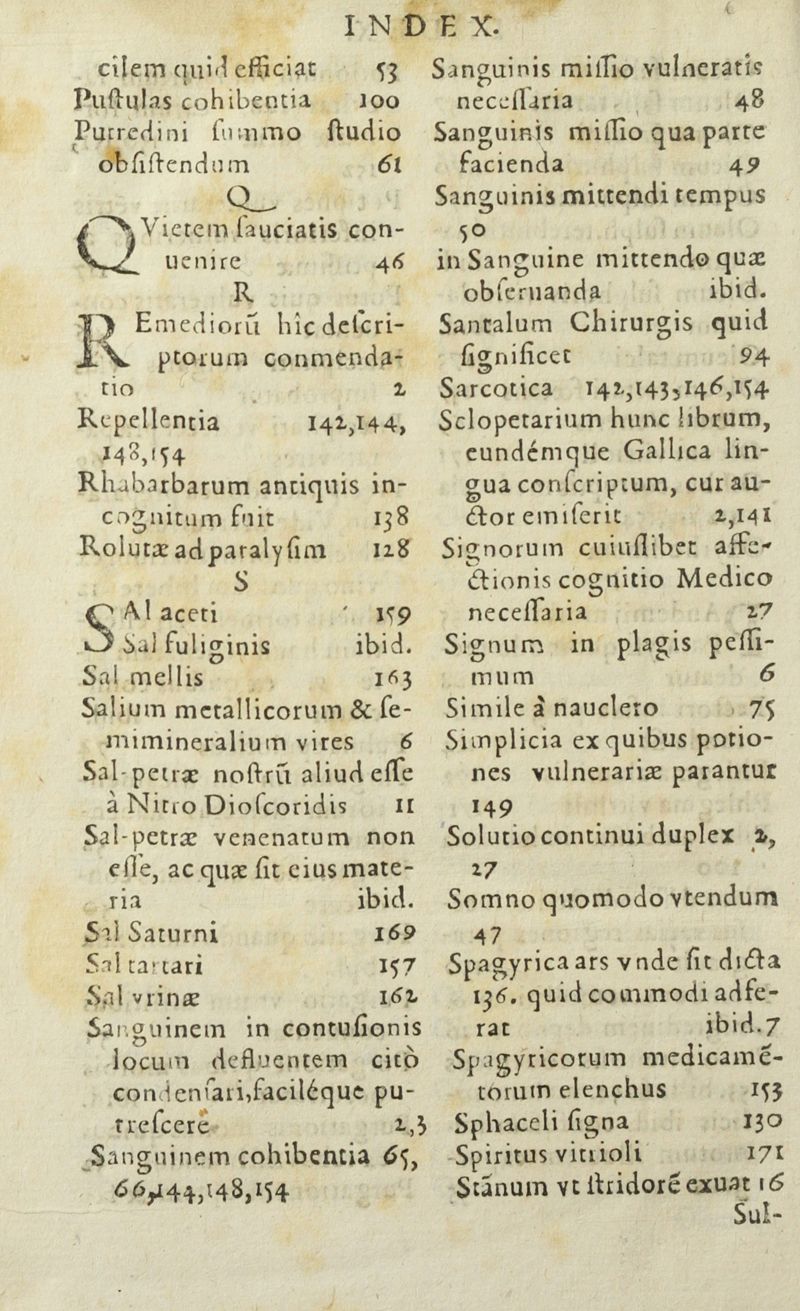 INDEX.
cilem quid efficiat 53
Puſtulas cohibentia 100
Putredini ſummo ſtudio
obſiſtendum 61
Q
QVietem ſauciatis con-
uenire 46
R
REmediorũ hîc deſcri-
ptorum conmenda-
tio 2
Repellentia 142,144,
148,154
Rhabarbarum antiquis in-
cognitum fuit 138
Roſutæ ad paralyſim 128
S
SAl aceti 159
Sal fuliginis ibid.
Sal mellis 163
Salium metallicorum & ſe-
mimineralium vires 6
Sal-petræ noſtrũ aliud eſſe
à Nitro Dioſcoridis 11
Sal-petræ venenatum non
eſſe, ac quæ ſit eius mate-
ria ibid.
Sal Saturni 169
Sal tartari 157
Sal vrinæ 162
Sanguinem in contuſionis
locum defluentem citò
condenſari, facilèque pu-
treſcere 2,3
Sanguinem cohibentia 65,
66,144,148,154
Sanguinis miſſio vulneratis
neceſſaria 48
Sanguinis miſſio qua parte
facienda 49
Sanguinis mittendi tempus
50
in Sanguine mittendo quæ
obſeruanda ibid.
Santalum Chirurgis quid
ſignificet 94
Sarcotica 142,143,146,154
Sclopetarium hunc librum,
eundémque Gallica lin-
gua conſcriptum, cur au-
ctor emiſerit 2,141
Signorum cuiuſlibet affe-
ctionis cognitio Medico
neceſſaria 27
Signum in plagis peſſi-
mum 6
Simile à nauclero 75
Simplicia ex quibus potio-
nes vulnerariæ parantur
149
Solutio continui duplex 2,
27
Somno quomodo vtendum
47
Spagyrica ars vnde ſit dicta
136. quid commodi adfe-
rat ibid.7
Spagyricorum medicamẽ-
torum elenchus 153
Sphaceli ſigna 130
Spiritus vitrioli 171
Stãnum vt ſtridorẽ exuat 16
Sul-